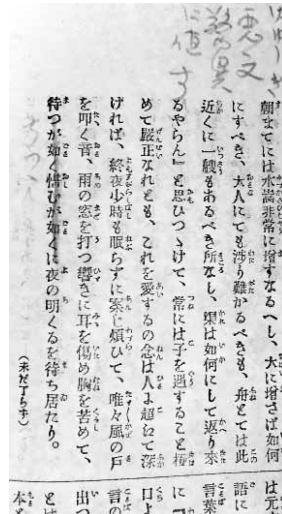 朝までには水嵩非常に増すなるべし、大に增さば如何
にすべき、大人にても渉り難かるべきも、舟とては此
近くに一艘もあるべき所なし、渠は如何にして返り来
るやらん』と思ひつゞけて、常には子を遇すること極
めて嚴正なれとも、これを愛するの念は人よ超にて深
ければ、終夜少時も眠らずに案じ煩ひて、唯々風の戸
を叩く音、雨の窓を打つ響きに耳を傷め胸を苦めて、
待つが如く惜むが如くに夜の明くるを待ち居たり。
(未だ丁らず)
は元
語に
言葉
に『
口上
言の
出つ
とは
本と